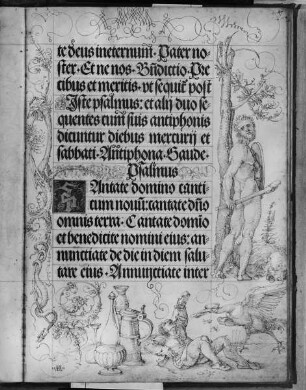 te deus ineternum. Pater no-
ster. Et ne nos. Bñdictio. Pre
cibus et meritis. vt sequit᷑ post
Iste psalmus: et alij duo se-
quentes cum suis antiphonis
dicuntur diebus mercurij et
sabbati. Antiphona. Gaude.
Psalmus
CAntate domino canti
cum nouũ: cantate dño
omnis terra. Cantate domĩo
et benedicite nomini eius: an-
nunctiate de die in diem salu-
tare eius. Annunctiate inter